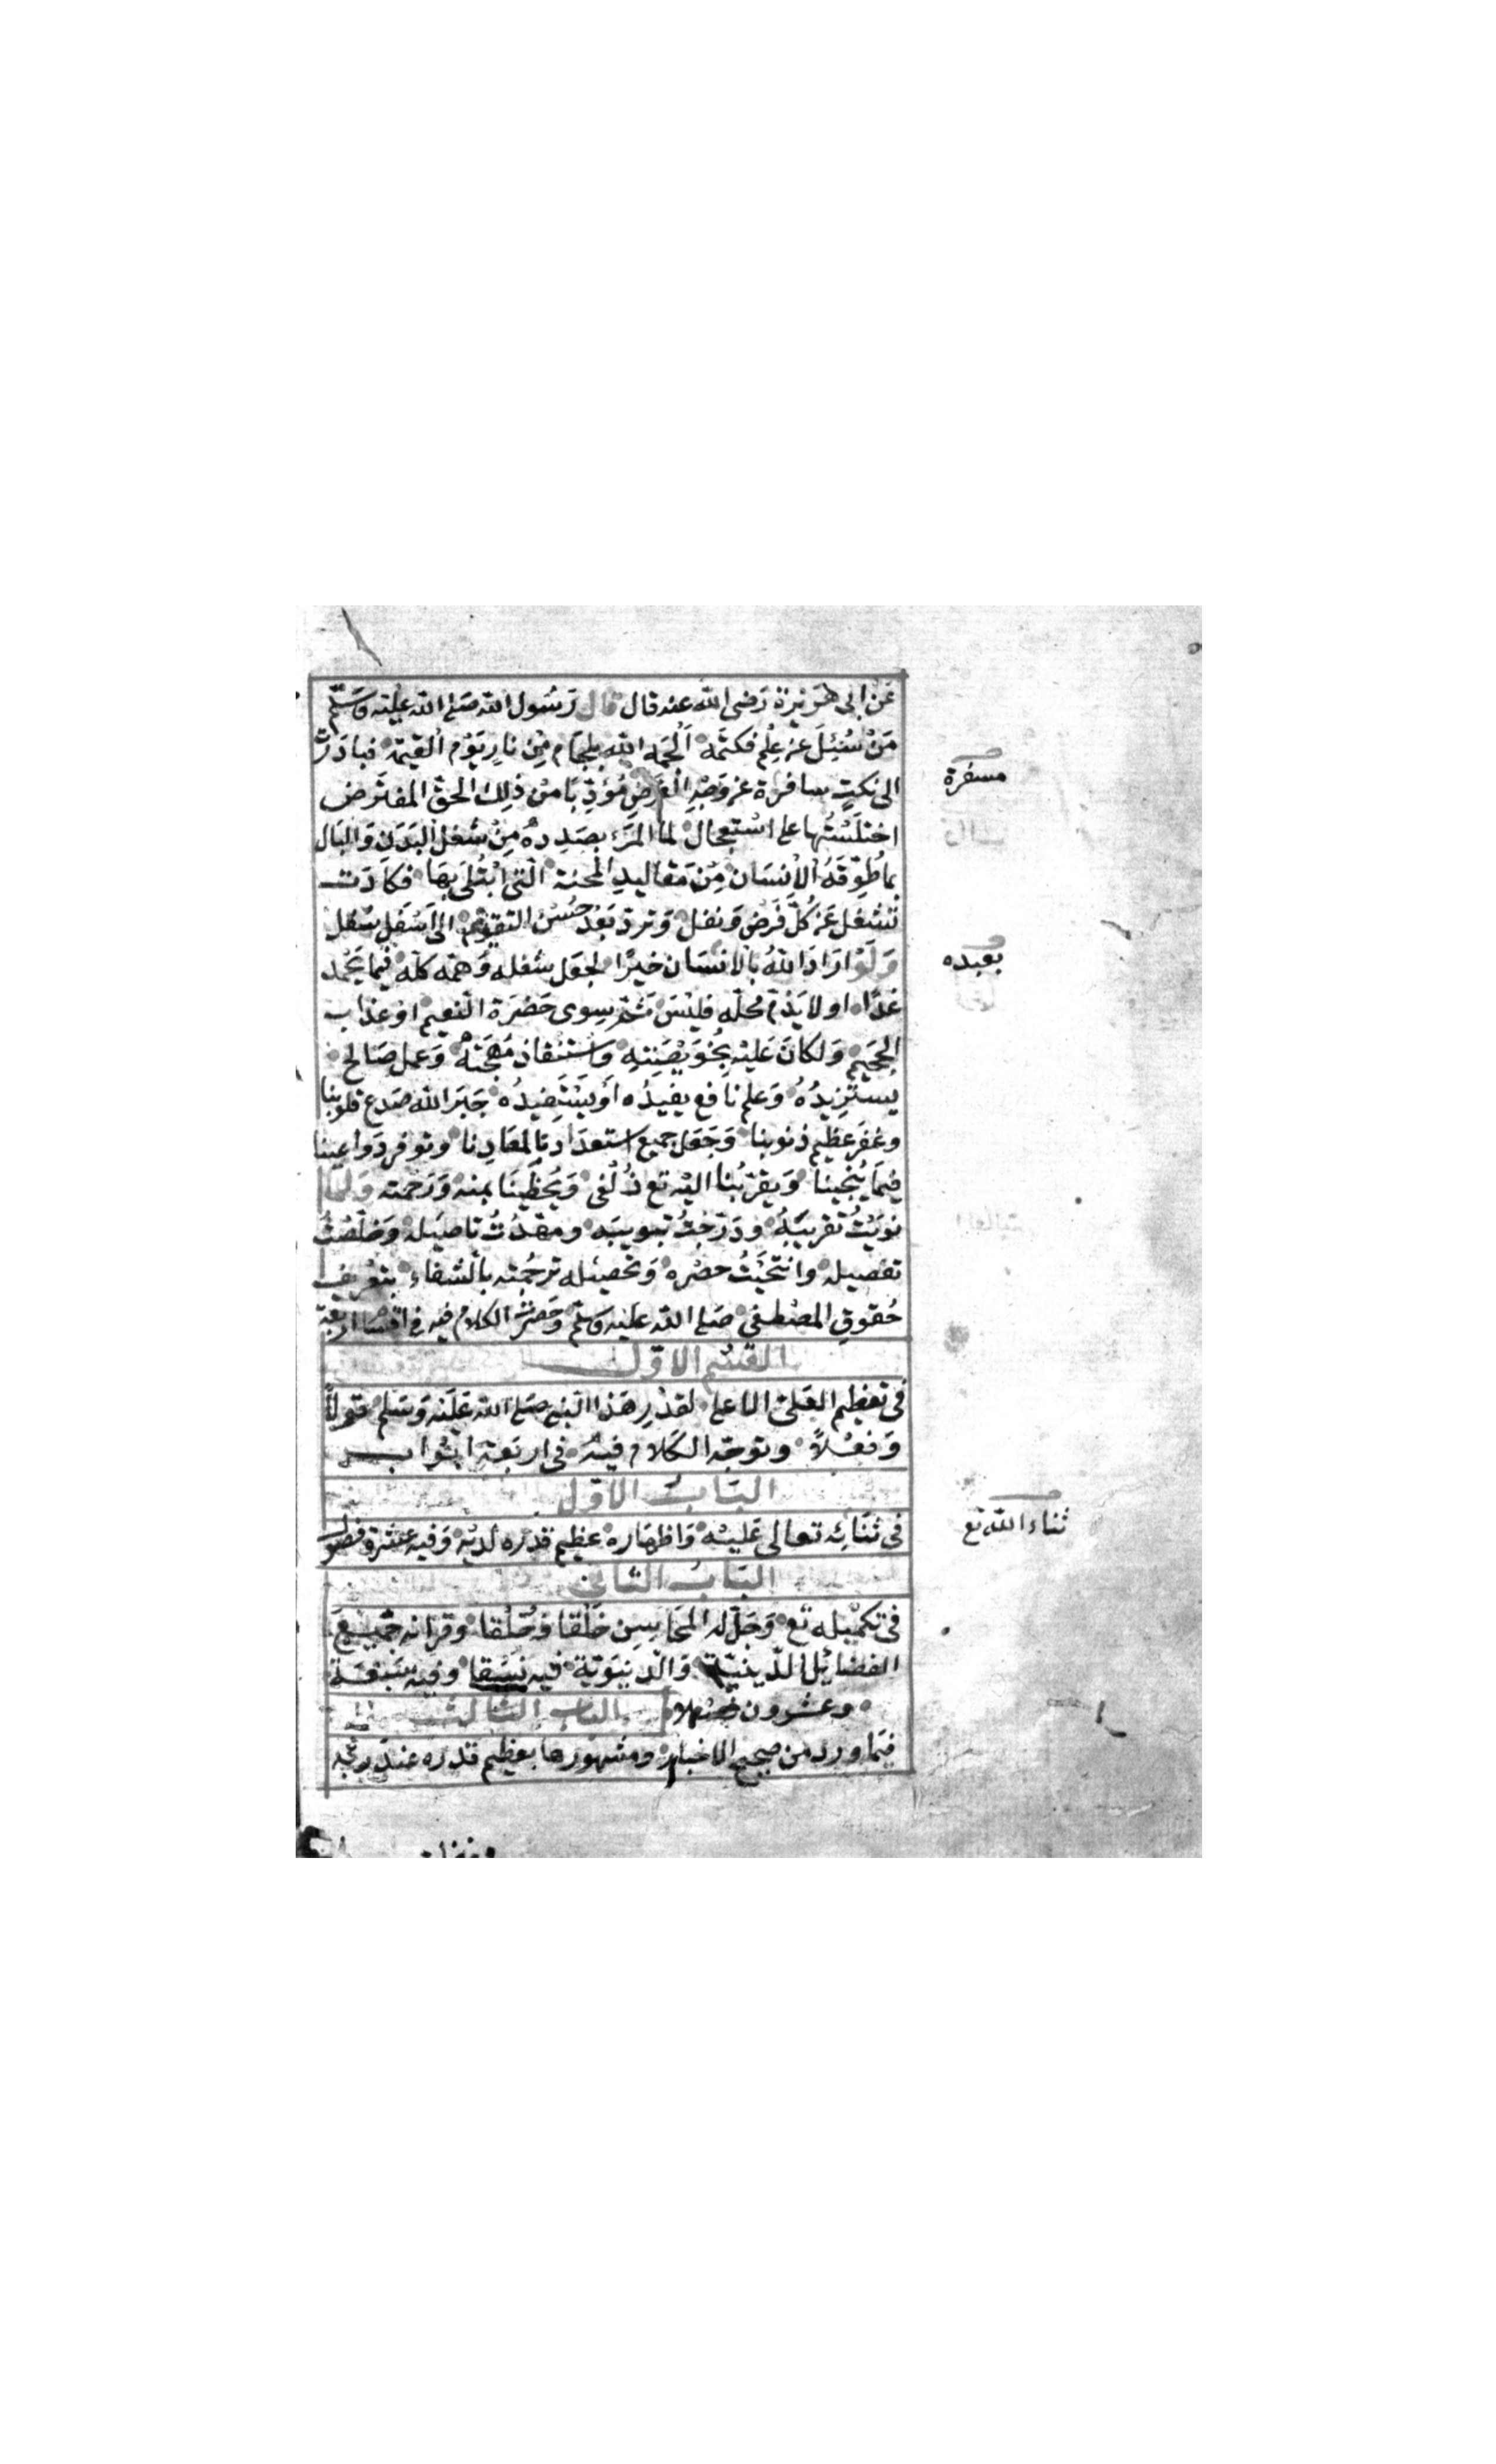 عَنْ ابى هُرَيْرَة رَضى الله عنه قال قال رَسُول الله صَلى الله عليْه وَسَلّم
مَنْ سُئِلَ عَنْ عِلْمٍ فكتمَه اَلْجَمَه الله بلجَامٍ مِنْ نارٍ يَوْم القيمة فبادَرْتُ
الى نكتٍ سافرة عن وَجْهِ الْغَرَضِ مُؤدّيًا مِنْ ذلِك الحقّ المفترَض
اختلَسْتُها على اسْتِعجال لما المرْء بصَدِدهِ مِنْ شغل البَدَن وَالبَال
بما طُوِّقَهُ الاِنسَان مِنْ مَقاليدِ المحنة الّتى ابْتُلى بهَا فكادَت
تشغل عَن كُلِّ فَرْض وَنفل وَتردّ بَعْدَ حُسْن التقويم الى اَسْفَل سفل
وَلَوْ ارَادَ اللهُ بالانسَان خيْرًا لجعَل شغله وَهمّه كله فيما يُحْمد
غدًا او لا يذمّ محلّه فليْسَ ثَمَّ سِوى حَضرَة النّعيم او عذاب
الجحيم وَلكانَ عَليْه بِخُوَيْصَتِه وَاستنقاذ مُهجَته وَعمل صَالح
يستزيدُهُ وَعلم نافع يفيدُه اَو يَسْتَفيدُه جَبَر الله صَدع قلوبنا
وغفر عظيم ذنوبنا وَجَعل جميع استعدَادِنا لمعَادِنا وتوفر دَواعينا
فيمَا يُنجينا وَيقرّبُنا اليْه تع زُلفى وَيُحظينَا بمنه وَرَحمته وَلمّا
نوَيْتُ تقريبَهُ ودَرّجْتُ تبويبَه ومهّدْتُ تاصيله وَخلّصْتُ
تفصيله وانتحَيْتُ حصْره وَتحصيله ترجمْته بالشفاء بتعْريف
حُقوقِ المصْطفى صَلى الله عليه وسَلّم وَحَصرْتُ الكلام فيه فى اقسَام اربعة
القسْم الاوّل
فى تعظيم العَلىّ الاعلى لقدْرِ هَذا النّبى صَلى الله عَليْه وَسَلم قولاً
وَفعْلاً وتوجّه الكلام فيه فى اربَعة ابْواب
البَابُ الاوّل
فى ثنَائِه تعالى عَليْه وَاظهَاره عظيم قدره لديْه وَفيه عشرة فصول
البَابُ الثانى
فى تكميْله تع وَجَلّ له المحَاسِن خَلْقا وَخُلُقا وقرانه جَميْعَ
الفضائل الدّينيّة وَالدّنيَويّة فيه نسَقا وَفيه سَبْعَة
وعشرون فصْلا الباب الثالث
فيمَا ورد من صحيح الاخبار ومشهورها بعظيم قدره عندَ ربّه
مسفرة
بعبده
ثناء الله تع